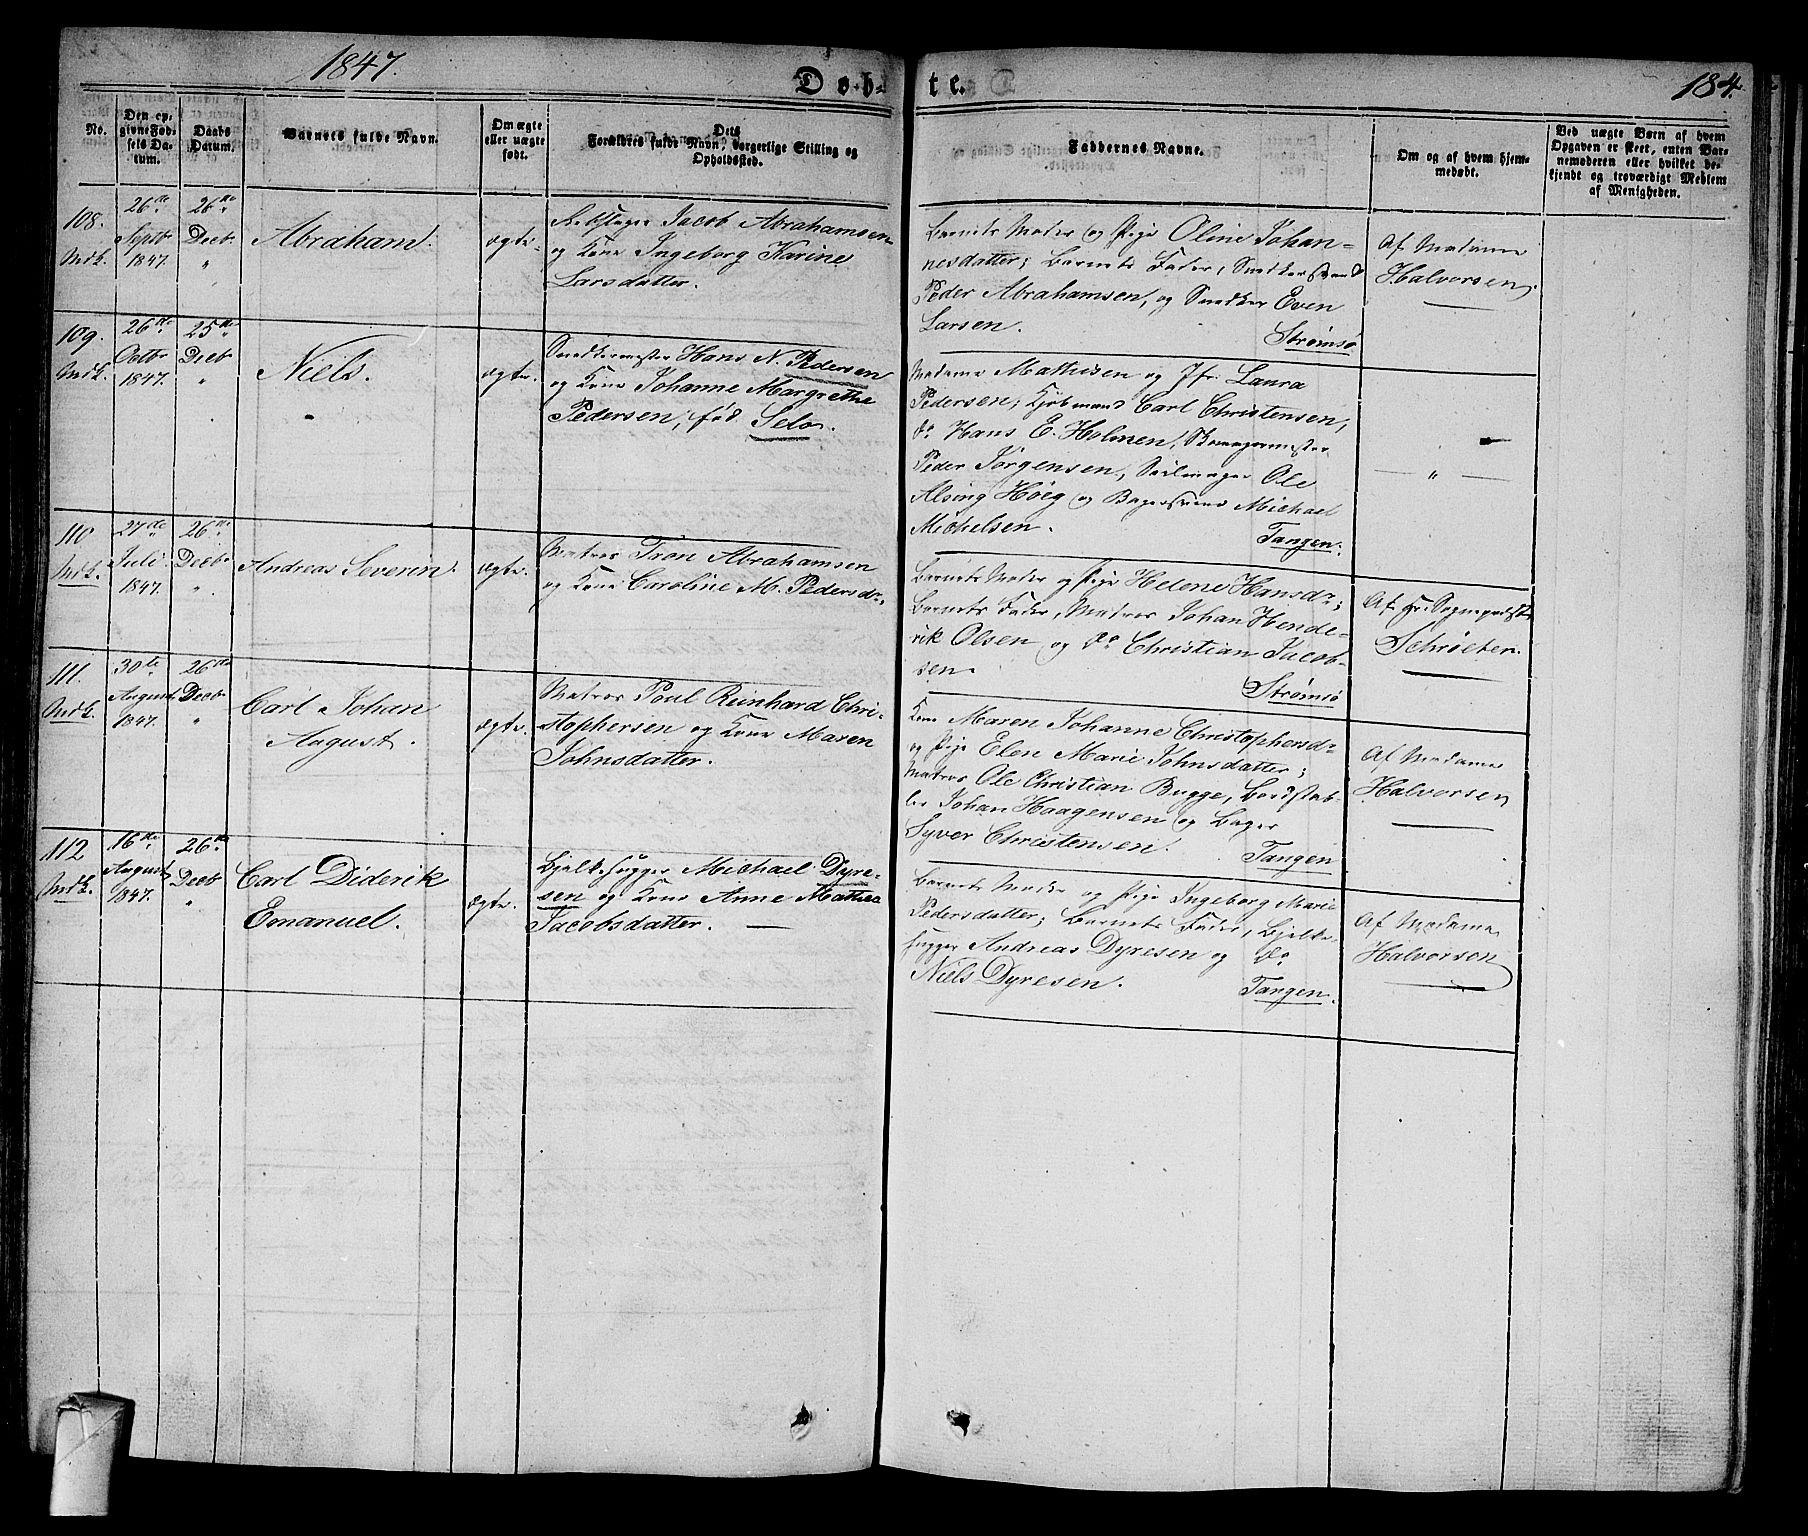 1847.
Døb-
te.
184.
No.
Den op-
givne Fød-
sels Da-
tum.
Daabs
Datum.
Barnets fulde Navn.
Om ægte
eller uægte
født.
Dets
Forældres fulde Navn, borgerlige Stilling og
Opholdssted.
Faddernes Navne.
Om og af hvem hjem-
medøbt.
Ved uægte Børn af hvem
Opgaven er skeet, enten Bar-
nemoderen eller hvilket be-
kjendt og troværdigt Medlem
af Menigheden.
108.
Mdk.
26de
Septbr
1847.
26de
Decbr
"
Abraham.
ægte.
Jacob Abrahamsen
og Kone Ingeborg Karine
Larsdatter.
Barnets Moder og Pige Oline Johan-
nesdatter; Barnets Fader, Snedkersvend
Peder Abrahamsen, og Snedker Even
Larsen.
Strømsø
Af Madame
Halvorsen.
109.
Mdk.
26de
Octbr
1847.
25de
Decbr
"
Niels.
ægte.
Snedkermester Hans N. Pedersen
og Kone Johanne Margrethe
Pedersen, fød Selo.
Madame Mathiesen og Jfr. Laura
Pedersen; Kjøbmand Carl Christensen,
do Hans E. Holmen, Skomagermester
Peder Jørgensen, Seilmager Ole
Alsing Høeg og Bagersvend Michael
Michelsen.
Tangen.
— " —
110
Mdk.
27de
Juli
1847.
26de
Decbr
"
Andreas Severin.
ægte.
Matros Tron Abrahamsen
og Kone Caroline M. Pedersdr.
Barnets Moder og Pige Helene Hansdr;
Barnets Fader, Matros Johan Hende-
rik Olsen og do Christian Jacob-
sen.
Strømsø
Af Hr. Sognepræst
Schrøeter.
111.
Mdk.
30te
August
1847.
26de
Decbr
"
Carl Johan
August.
ægte.
Matros Poul Reinhard Chri-
stophersen og Kone Maren
Johnsdatter.
Kone Maren Johanne Christophersdr
og Pige Elen Marie Johnsdatter;
Matros Ole Christian Bugge, Bordstab-
ler Johan Haagensen og Bager
Syver Christensen.
Tangen
Af Madame
Halvorsen
112
Mdk.
16de
August
1847.
26de
Decbr
"
Carl Diderik
Emanuel.
ægte.
Bjelkehugger Michael Dyre-
sen og Kone Anne Mathea
Jacobsdatter. —
Barnets Moder og Pige Ingeborg Marie
Pedersdatter; Barnets Fader, Bjelke-
hugger Andreas Dyresen og do
Niels Dyresen.
Tangen.
Af Madame
Halvorsen